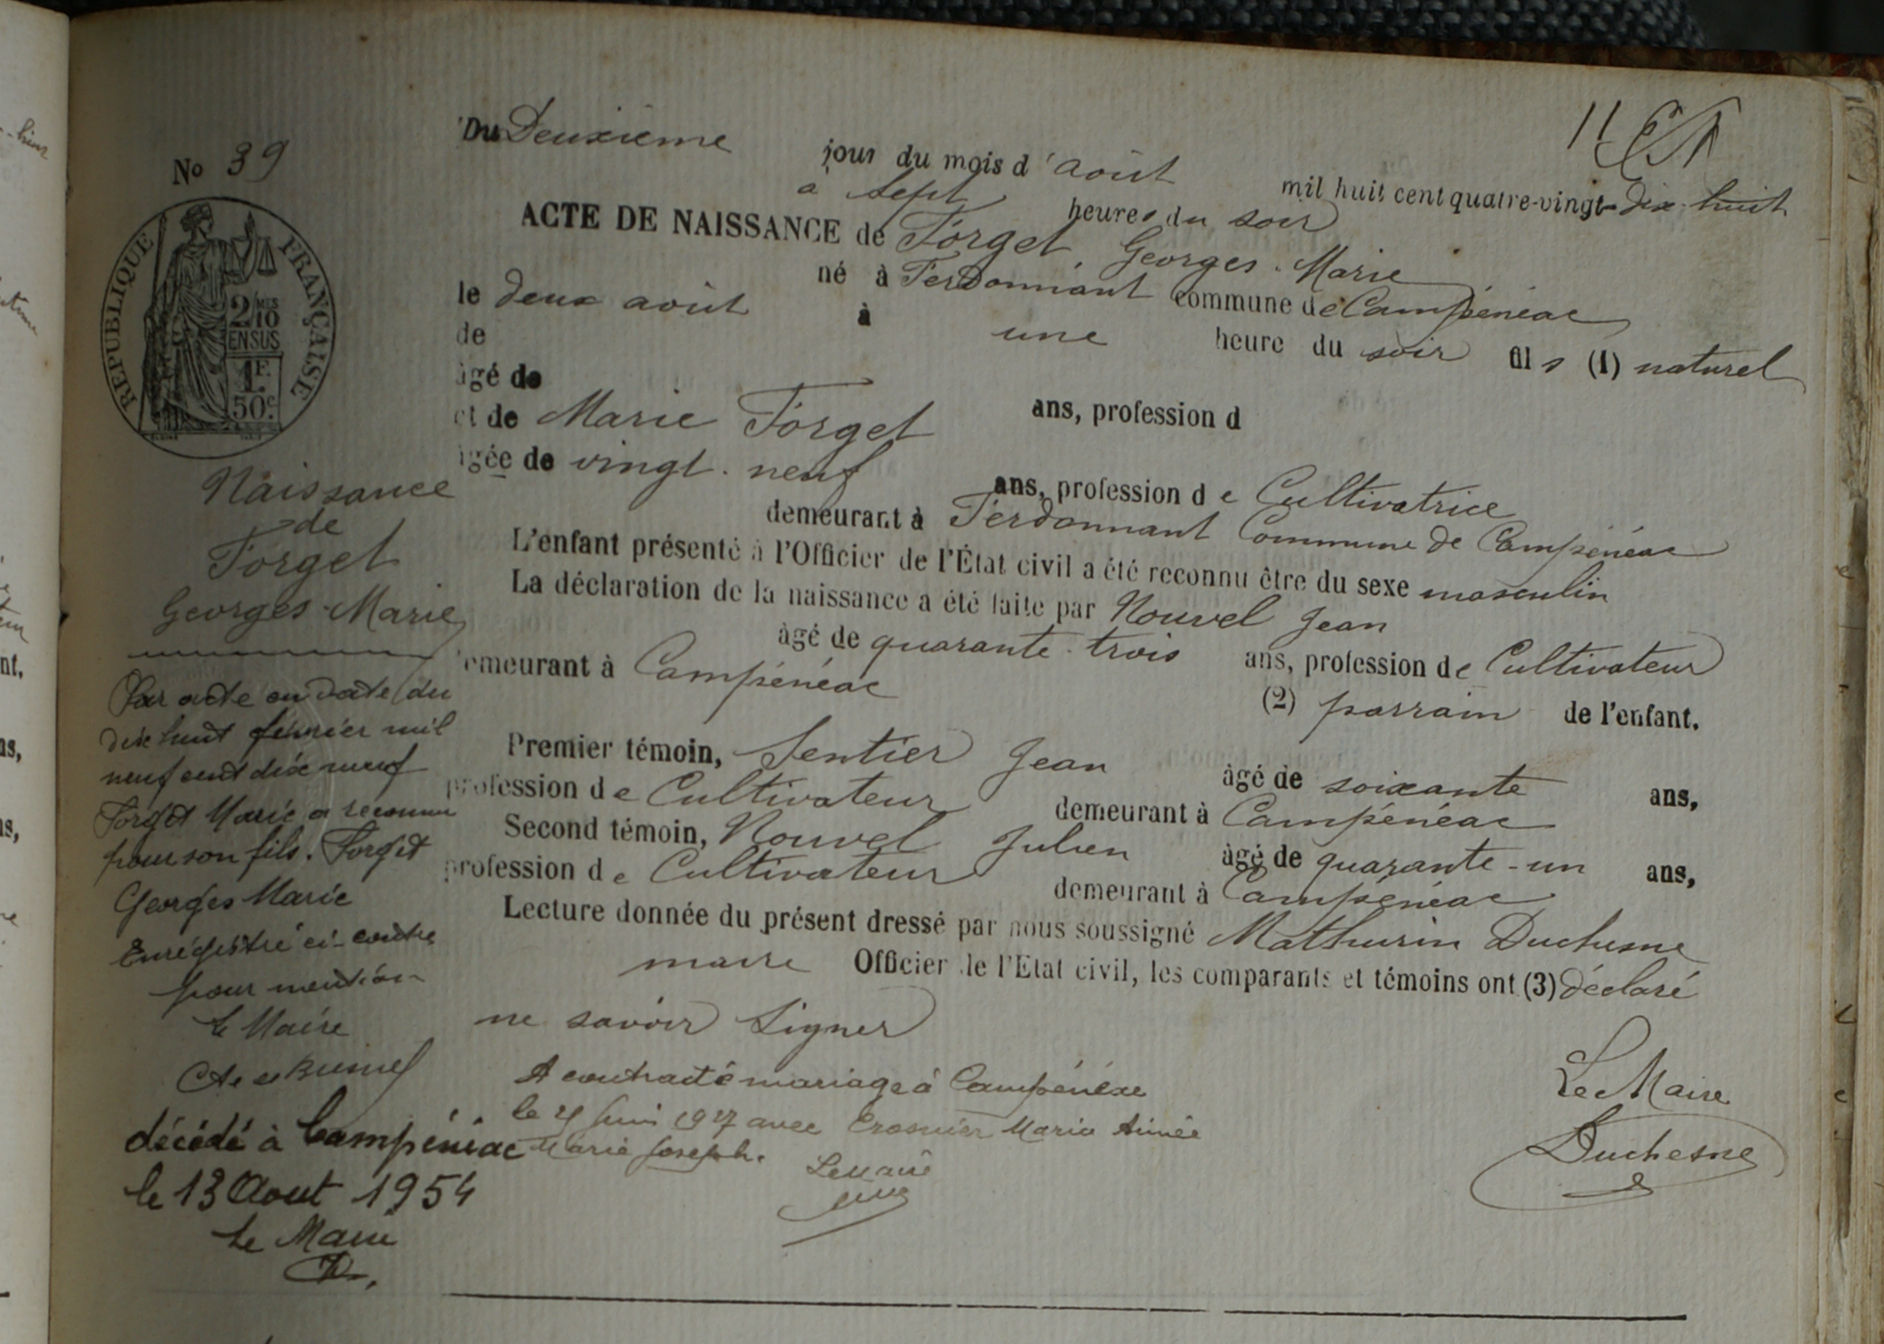 11
No 39
Du Deuxième jour du mois d'août mil huit cent quatre-vingt-dix-huit
à sept heures du soir
ACTE DE NAISSANCE de Forget, Georges-Marie
né à Ferdonnant commune de Campénéac
le deux août à une heure du soir fils (1) naturel
de
âgé de ans, profession d
et de Marie Forget
âgée de vingt-neuf ans, profession de Cultivatrice
demeurant à Ferdonnant Commune de Campénéac
L'enfant présenté à l'Officier de l'État civil a été reconnu être du sexe masculin
La déclaration de la naissance a été faite par Nouvel Jean
âgé de quarante-trois ans, profession de Cultivateur
demeurant à Campénéac (2) parrain de l'enfant.
Premier témoin, Sentier Jean âgé de soixante ans,
profession de Cultivateur demeurant à Campénéac
Second témoin, Nouvel Julien âgé de quarante-un ans,
profession de Cultivateur demeurant à Campénéac
Lecture donnée du présent dressé par nous soussigné Mathurin Duchesne
maire Officier de l'État civil, les comparants et témoins ont (3) déclaré
ne savoir signer
Le Maire
Duchesne
A contracté mariage à Campénéac
le juin 1927 avec Crosnier Marie Aimée
Marie Joseph.
Le Maire
REPUBLIQUE FRANÇAISE
2/10
EN SUS
1F
50c
Naissance
de
Forget
Georges-Marie
Par acte en date du
dix huit février mil
neuf cent dix neuf
Forget Marie a reconnu
pour son fils. Forget
Georges Marie
Enregistré ci-contre
pour mention
Le Maire
décédé à Campénéac
le 13 Aout 1954
Le Maire